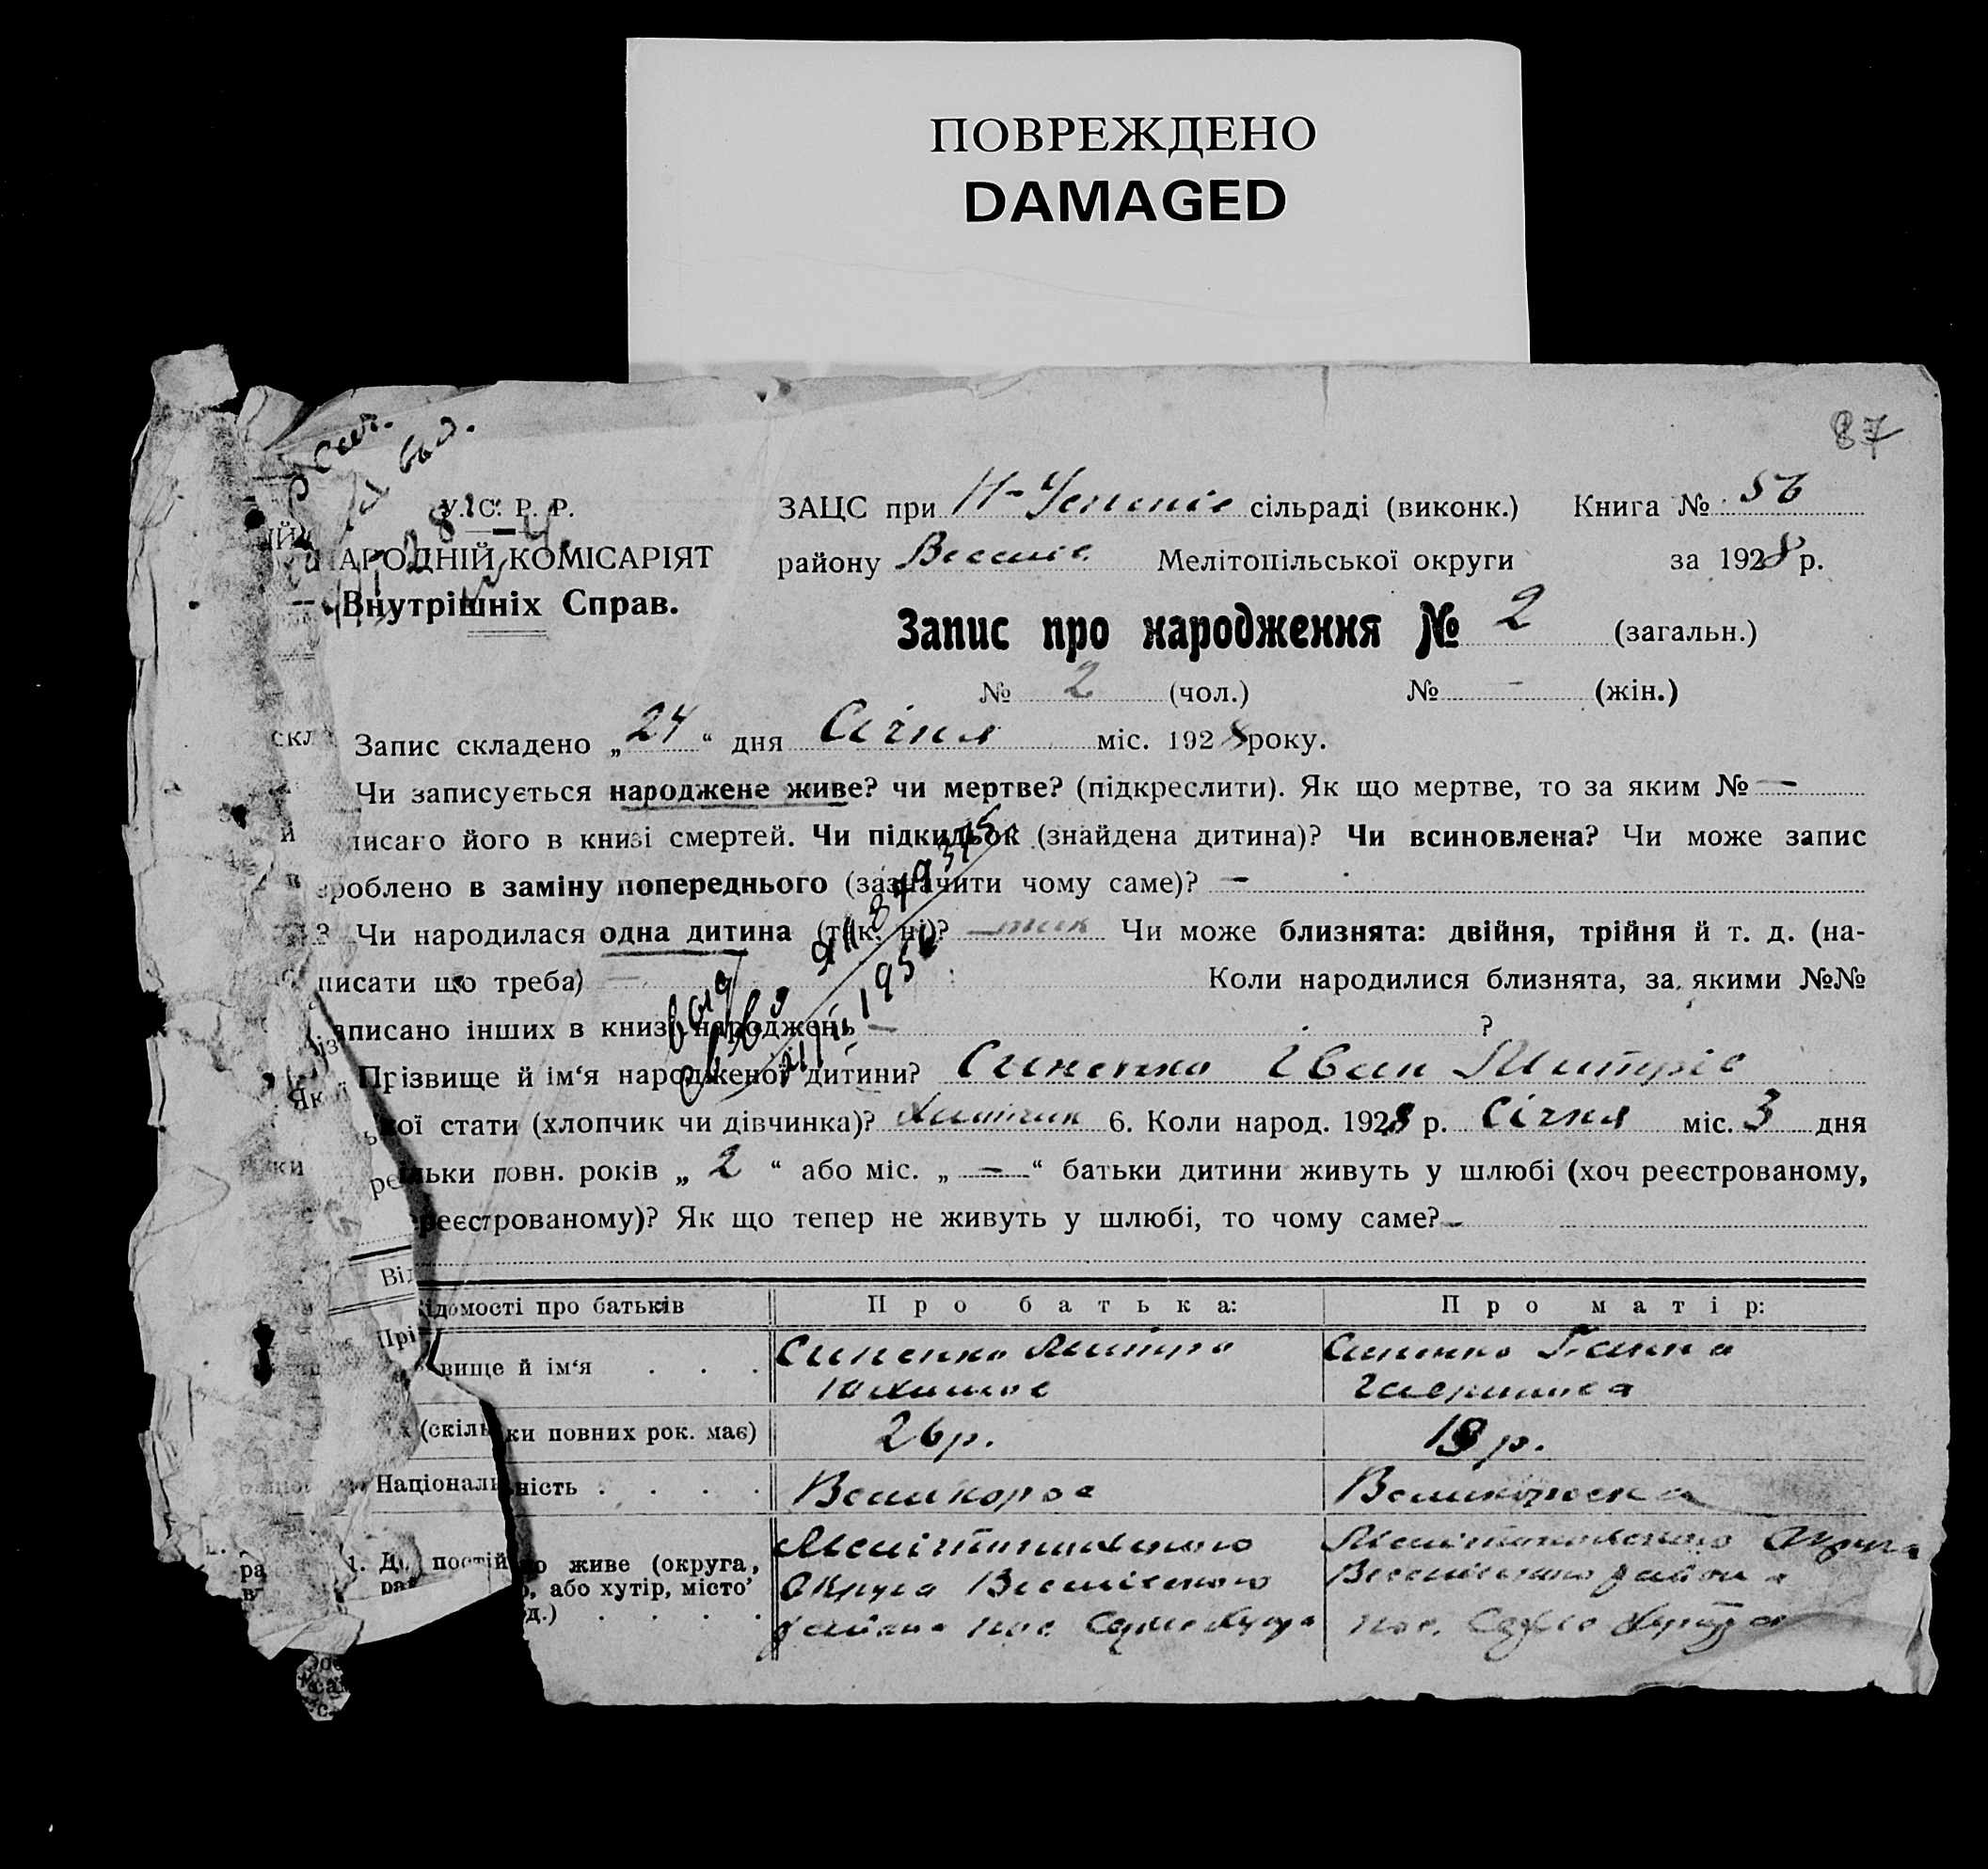 ПОВРЕЖДЕНО
DAMAGED
87
У. С. Р. Р.
НАРОДНІЙ КОМІСАРІЯТ
Внутрішніх Справ.
ЗАЦС при Н-Успеніє сільраді (виконк.) Книга № 56
району Веселіє Мелітопільської округи за 1928 р.
Запис про народження № 2 (загальн.)
№ 2 (чол.) № - (жін.)
Запис складено „24“ дня Січня міс. 1928 року.
Чи записується народжене живе? чи мертве? (підкреслити). Як що мертве, то за яким № —
писаго його в книзі смертей. Чи підкидьок (знайдена дитина)? Чи всиновлена? Чи може запис
зроблено в заміну попереднього (зазначити чому саме)? —
3 Чи народилася одна дитина (так, ні)? — так Чи може близнята: двійня, трійня й т. д. (на-
писати що треба) — Коли народилися близнята, за якими №№
записано інших в книзі народжень — ?
Прізвище й ім‘я народженої дитини? Синенко Іван Митріє
кої стати (хлопчик чи дівчинка)? Хлопчик 6. Коли народ. 1928 р. Січня міс. 3 дня
льки повн. років „ 2 “ або міс. „ — “ батьки дитини живуть у шлюбі (хоч реєстрованому,
реєстрованому)? Як що тепер не живуть у шлюбі, то чому саме? -
ідомості про батьків Про батька: Про матір:
вище й ім‘я . . . Синенко Митро Синенко Ганна
Юхимов
(скільки повних рок. має) 26 р. 18 р.
Національність . . . . Великорос Великороска
живе (округа, Мелітопильского Мелітопильского Округа
або хутір, місто’ Округа Веселівского Веселівского района
д.) . . . . района пос. пос.